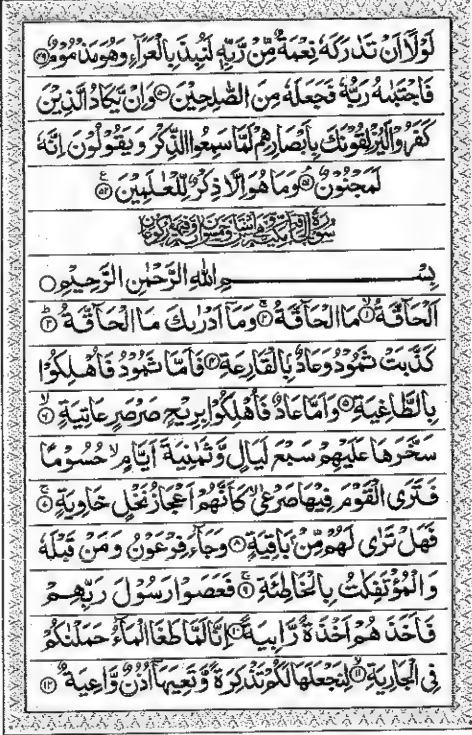 لَوْلَآ اَنْ تَدٰرَكَهٗ نِعْمَةٌ مِّنْ رَّبِّهٖ لَنُبِذَ بِالْعَرَآءِ وَهُوَ مَذْمُوْمٌ ﴿۴۹﴾
فَاجْتَبٰىهُ رَبُّهٗ فَجَعَلَهٗ مِنَ الصّٰلِحِيْنَ ﴿۵۰﴾ وَاِنْ يَّكَادُ الَّذِيْنَ
كَفَرُوْا لَيُزْلِقُوْنَكَ بِاَبْصَارِهِمْ لَمَّا سَمِعُوا الذِّكْرَ وَيَقُوْلُوْنَ اِنَّهٗ
لَمَجْنُوْنٌ ﴿۵۱﴾ وَمَا هُوَ اِلَّا ذِكْرٌ لِّلْعٰلَمِيْنَ ﴿۵۲﴾ ع
بِسْمِ اللّٰهِ الرَّحْمٰنِ الرَّحِيْمِ
اَلْحَآقَّةُ ﴿۱﴾ۙ مَا الْحَآقَّةُ ﴿۲﴾ۚ وَمَآ اَدْرٰىكَ مَا الْحَآقَّةُ ﴿۳﴾ؕ
كَذَّبَتْ ثَمُوْدُ وَعَادٌۢ بِالْقَارِعَةِ ﴿۴﴾ فَاَمَّا ثَمُوْدُ فَاُهْلِكُوْا
بِالطَّاغِيَةِ ﴿۵﴾ وَاَمَّا عَادٌ فَاُهْلِكُوْا بِرِيْحٍ صَرْصَرٍ عَاتِيَةٍ ﴿۶﴾ۙ
سَخَّرَهَا عَلَيْهِمْ سَبْعَ لَيَالٍ وَّثَمٰنِيَةَ اَيَّامٍۙ حُسُوْمًا
فَتَرَى الْقَوْمَ فِيْهَا صَرْعٰىۙ كَاَنَّهُمْ اَعْجَازُ نَخْلٍ خَاوِيَةٍ ﴿۷﴾ۚ
فَهَلْ تَرٰى لَهُمْ مِّنْۢ بَاقِيَةٍ ﴿۸﴾ وَجَآءَ فِرْعَوْنُ وَمَنْ قَبْلَهٗ
وَالْمُؤْتَفِكٰتُ بِالْخَاطِئَةِ ﴿۹﴾ۚ فَعَصَوْا رَسُوْلَ رَبِّهِمْ
فَاَخَذَهُمْ اَخْذَةً رَّابِيَةً ﴿۱۰﴾ اِنَّا لَمَّا طَغَا الْمَآءُ حَمَلْنٰكُمْ
فِى الْجَارِيَةِ ﴿۱۱﴾ۙ لِنَجْعَلَهَا لَكُمْ تَذْكِرَةً وَّتَعِيَهَآ اُذُنٌ وَّاعِيَةٌ ﴿۱۲﴾